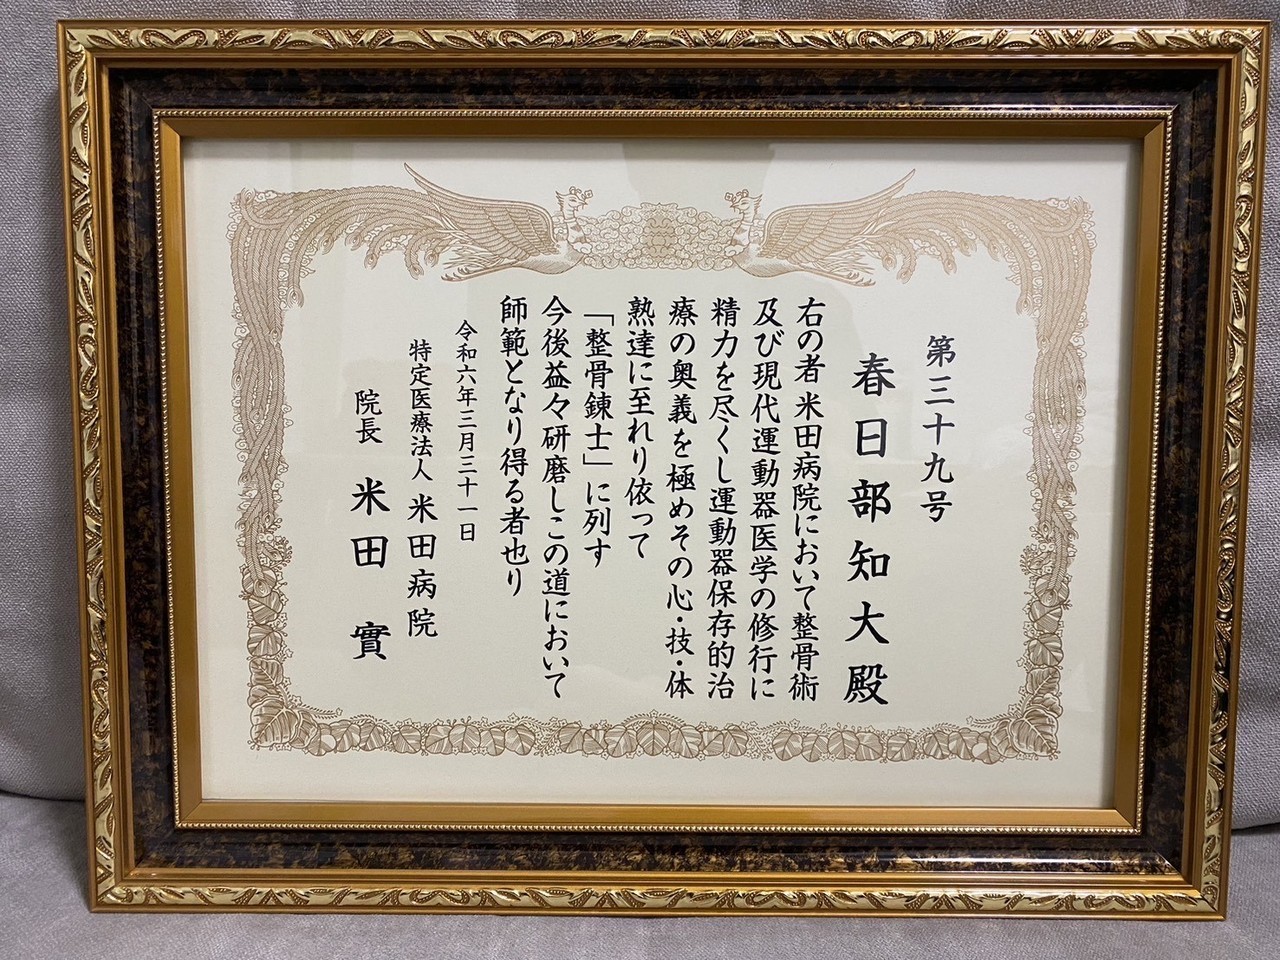 第三十九号
春日部知大殿
右の者米田病院において整骨術
及び現代運動器医学の修行に
精力を尽くし運動器保存的治
療の奥義を極めその心・技・体
熟達に至れり依って
「整骨錬士」に列す
今後益々研磨しこの道において
師範となり得る者也り
令和六年三月三十一日
特定医療法人 米田病院
院長 米田 實